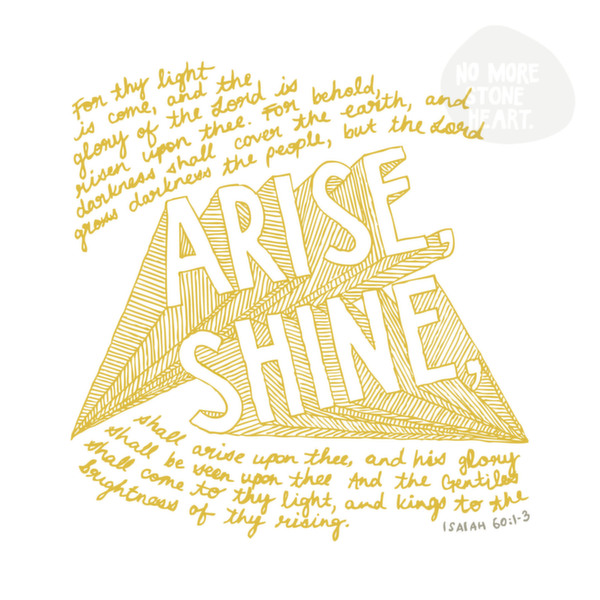 NO MORE
STONE
HEART.
For thy light
is come, and the
glory of the Lord is
risen upon thee. For behold,
darkness shall cover the earth, and
gross darkness the people, but the Lord
ARISE,
SHINE,
shall arise upon thee, and his glory
shall be seen upon thee And the Gentiles
shall come to thy light, and kings to the
brightness of thy rising.
ISAIAH 60:1-3